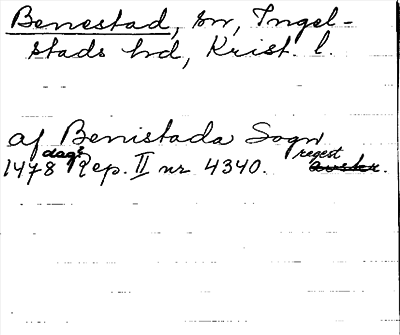 Benestad, sn, Ingel-
stads hd, Krist. l.
af Benistada Sogn
1478 dags Rep. II nr 4340. regest